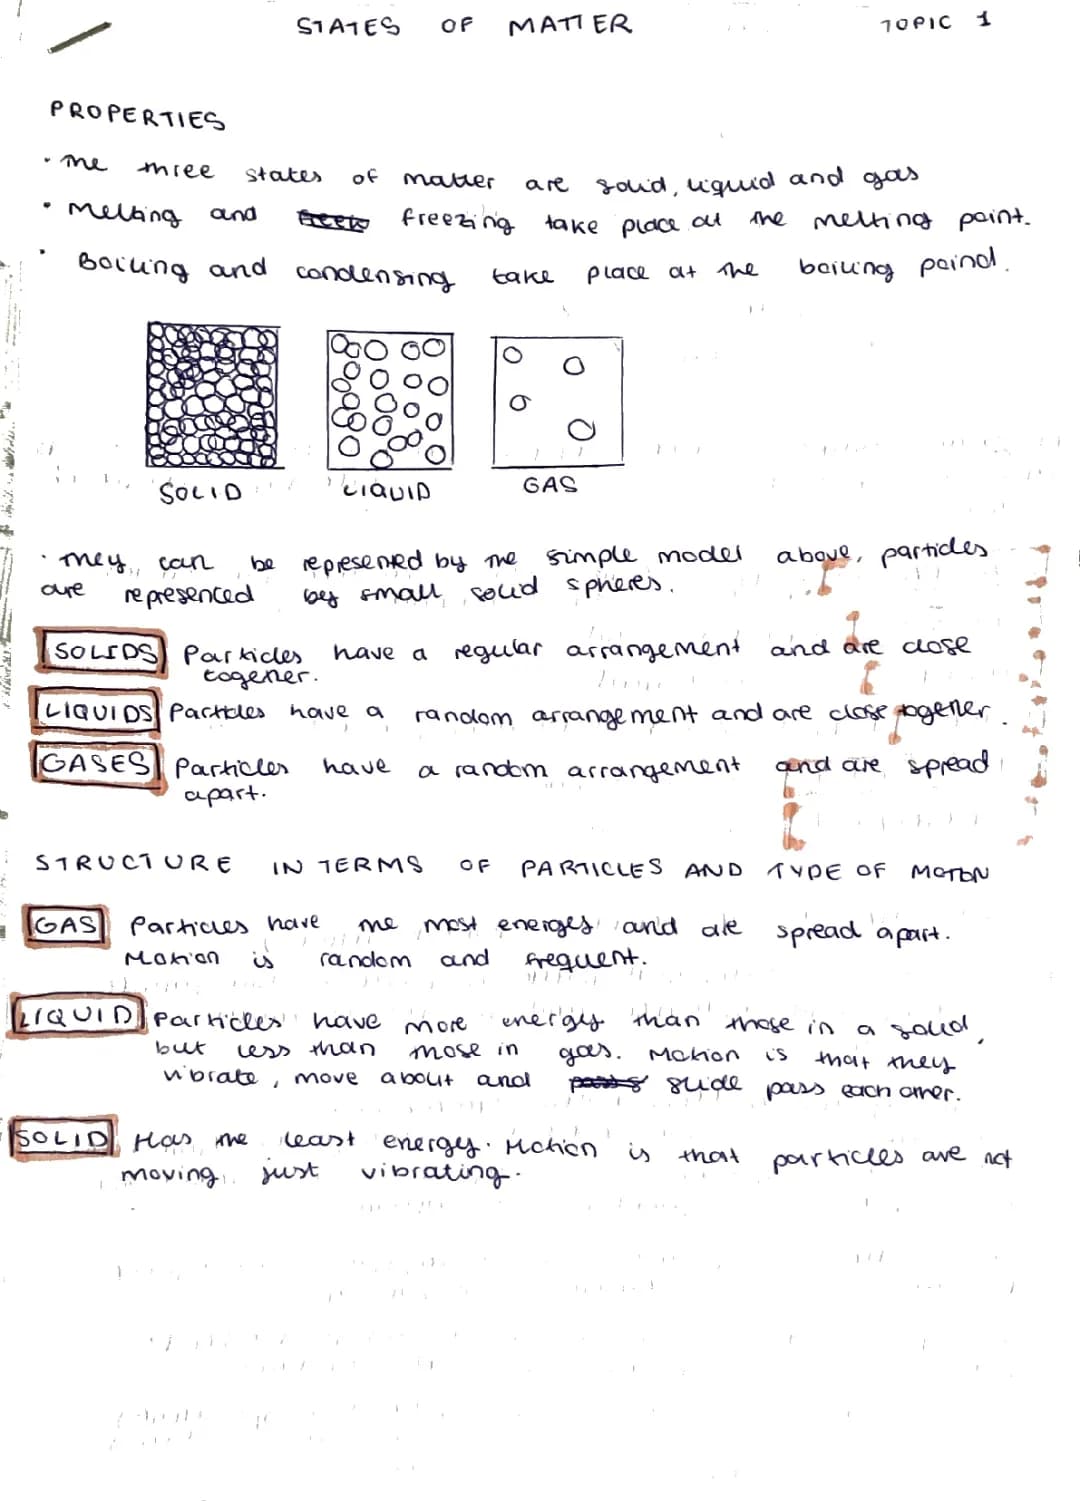 STATES OF MATTER TOPIC 1
PROPERTIES
• The three states of matter are solid, liquid and gas
• Melting and freezing take place at the melting point.
• Boiling and condensing take place at the boiling point.
SOLID LIQUID GAS
• They can be represented by the simple model above, particles
are represented by small solid spheres.
SOLIDS Particles have a regular arrangement and are close
together.
LIQUIDS Particles have a random arrangement and are close together.
GASES Particles have a random arrangement and are spread
apart.
STRUCTURE IN TERMS OF PARTICLES AND TYPE OF MOTION
GAS Particles have the most energy and are spread apart.
Motion is random and frequent.
LIQUID Particles have more energy than those in a solid,
but less than those in gas. Motion is that they
vibrate, move about and slide pass each other.
SOLID Has the least energy. Motion is that particles are not
moving, just vibrating.